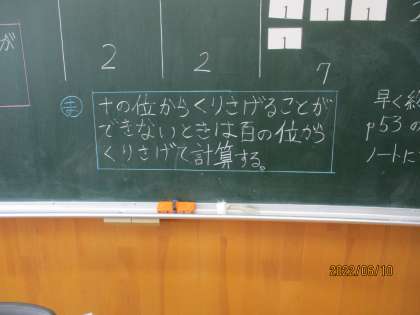 が
1 1 1
1
2 2 7
ま
十の位からくりさげることが
できないときは百の位から
くりさげて計算する。
早く終
p53の
ノートに
2022/06/10